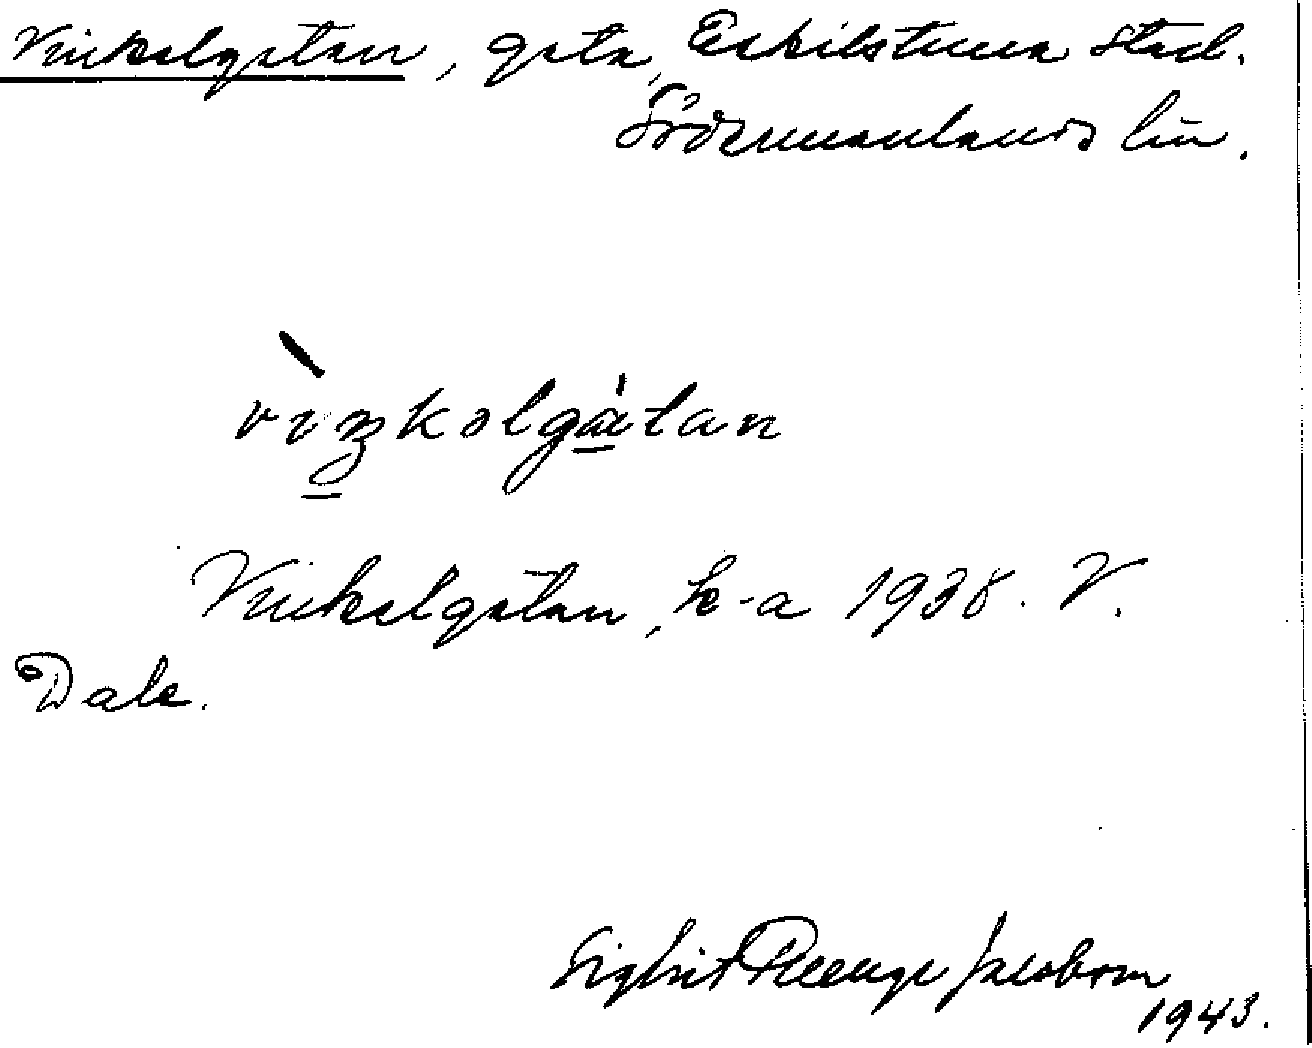 Vinkelgatan, gata, Eskilstuna stad.
Södermanlands län.
vıŋkəlgàtan
Vinkelgatan, k-a 1938. V.
Dale.
Sigbrit Plænge Jacobson
1943.